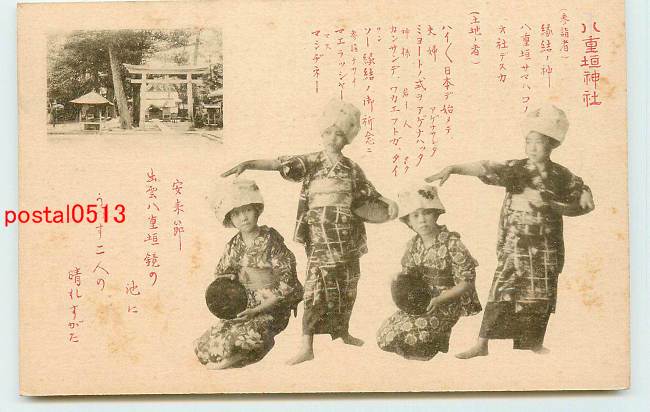 八重垣神社
(参詣者)
縁結ノ神
八重垣サマハコノ
大社デスカ
(土地ノ者)
ハイ〱日本デ始メテ
夫婦
アゲナサレタ
ミョートノ式ヲアゲナハック
神様
若 人
カンサンデ、ワカエフトガ、タイ
ソー縁結ノ御祈念ニ
参詣ナサイ
マエラッシャー
マス
マンデネー
安来ぶし
出雲八重垣鏡の
池に
うつす二人の
晴れすがた
postal0513